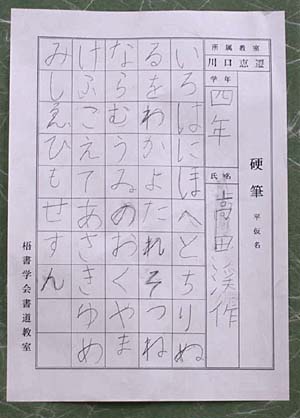 硬筆 平仮名
所属教室
川口
学年
四年
氏名
高田渓作
いろはにほへとちりぬ
るをわかよたれそつね
ならむうゐのおくやま
けふこえてあさきゆめ
みしゑひもせすん
梧書学会書道教室